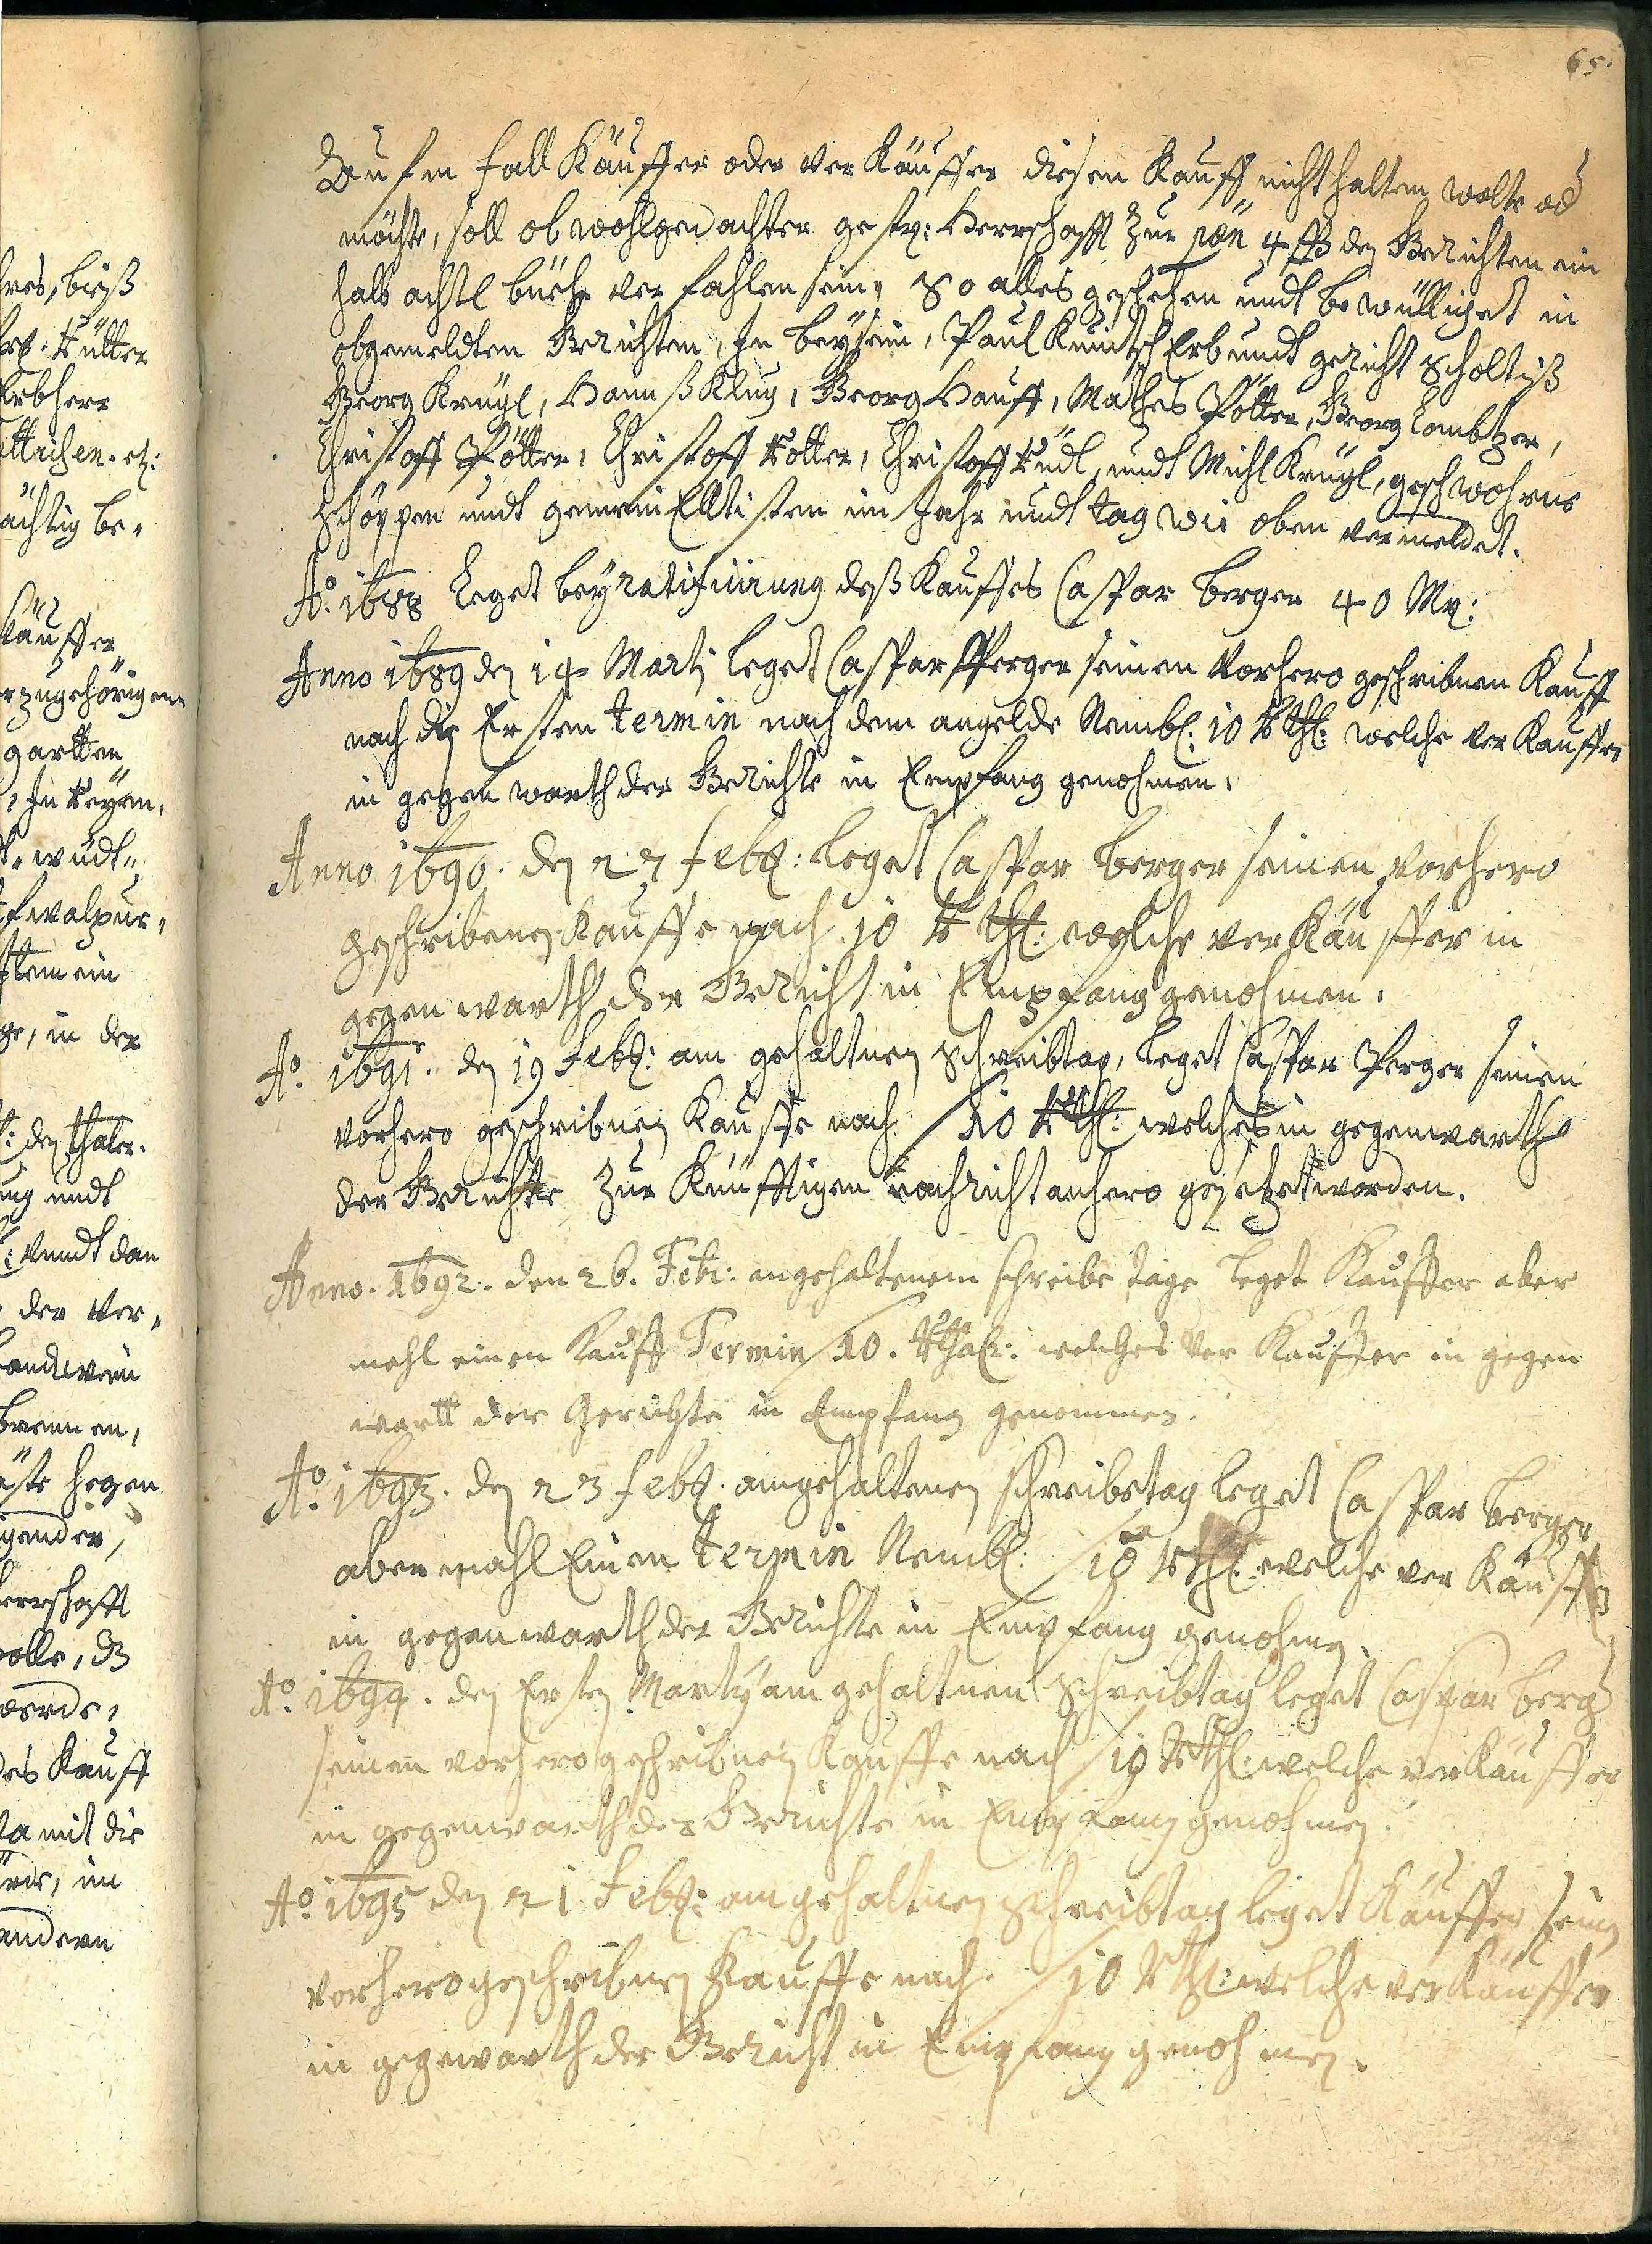 65.
Auf en fall Käuffer oder verKäuffer diesen Kauff nicht halten wolte od
möchte, soll obwohlgedachter gestr: Herrschafft zur pœn 4 ß den Gerichten ein
halb achtl bier verfahlen sein, So alles geschehen undt bewilliget in
obgemeldten Gerichten, In beysein, Paul Knuitsch Erb undt gericht Scholtiß
Georg Krügl, Hannß Klug, Georg Hauff, Mathes Pötter, Georg Lambtzer,
Christoff Pötter, Christoff Rotter, Christoff Rüdl, undt Michl Krügl, geschwohrne
Schöppen undt gemein Elltisten im Jahr undt tag wie oben vermeldet.
Ao. 1688 Leget bey ratificirung deß Kauffes Caspar berger 40 Mr:
Anno 1689 den 14 Martj leget Caspar Perger seinem Vorhero geschribnen Kauff
nach die Ersten termin nach dem angelde Nembl: 10 Rthl: welche verKauffer
in gegenwarth der Gerichte in Empfang genohmen.
Anno 1690. den 27 feb: leget Caspar berger seinen vorhero
geschribenen Kauffe nach 10 Rthl: welche verKäuffer in
gegenwarth der Gericht in Empfang genohmen.
Ao. 1691. den 19 Feb: am gehaltnen Schreibtag, leget Caspar Perger seinen
vorhero geschribnen Kauffe nach / 10 Rthl: welches in gegenwarth
der Gerichte zur Künfftigen nachricht anhero gesetzet worden.
Anno. 1692. den 26. Febr: angehaltenem schreibe tage leget Kauffer aber
mahl einen Kauff Termin / 10. Rthal: welches ver Kauffer in gegen
wartt der Gerichte in Empfang genommen.
Ao. 1693. den 23 feb. amgehaltenen schreibetag leget Caspar berger
abermahl Einen termin Nembl: / 10 Rthl: welche ver Käuffer
in gegenwarth der Gerichte in Empfang genohmen.
Ao. 1694. den Ersten Marty am gehaltnen Schreibtag leget Caspar berg
seinen vorhero geschribnen Kauffe nach / 10 Rthl: welche verKäuffer
in gegenwarth der Gerichte in Empfang genohmen.
Ao. 1695 den 21 Feb: am gehaltnen Schreibtag leget Käuffer seinen
vorhero geschribnen Kauffe nach. / 10 Rthl: welche verKäuffer
in gegewarth der Gericht in Empfang genohmen.